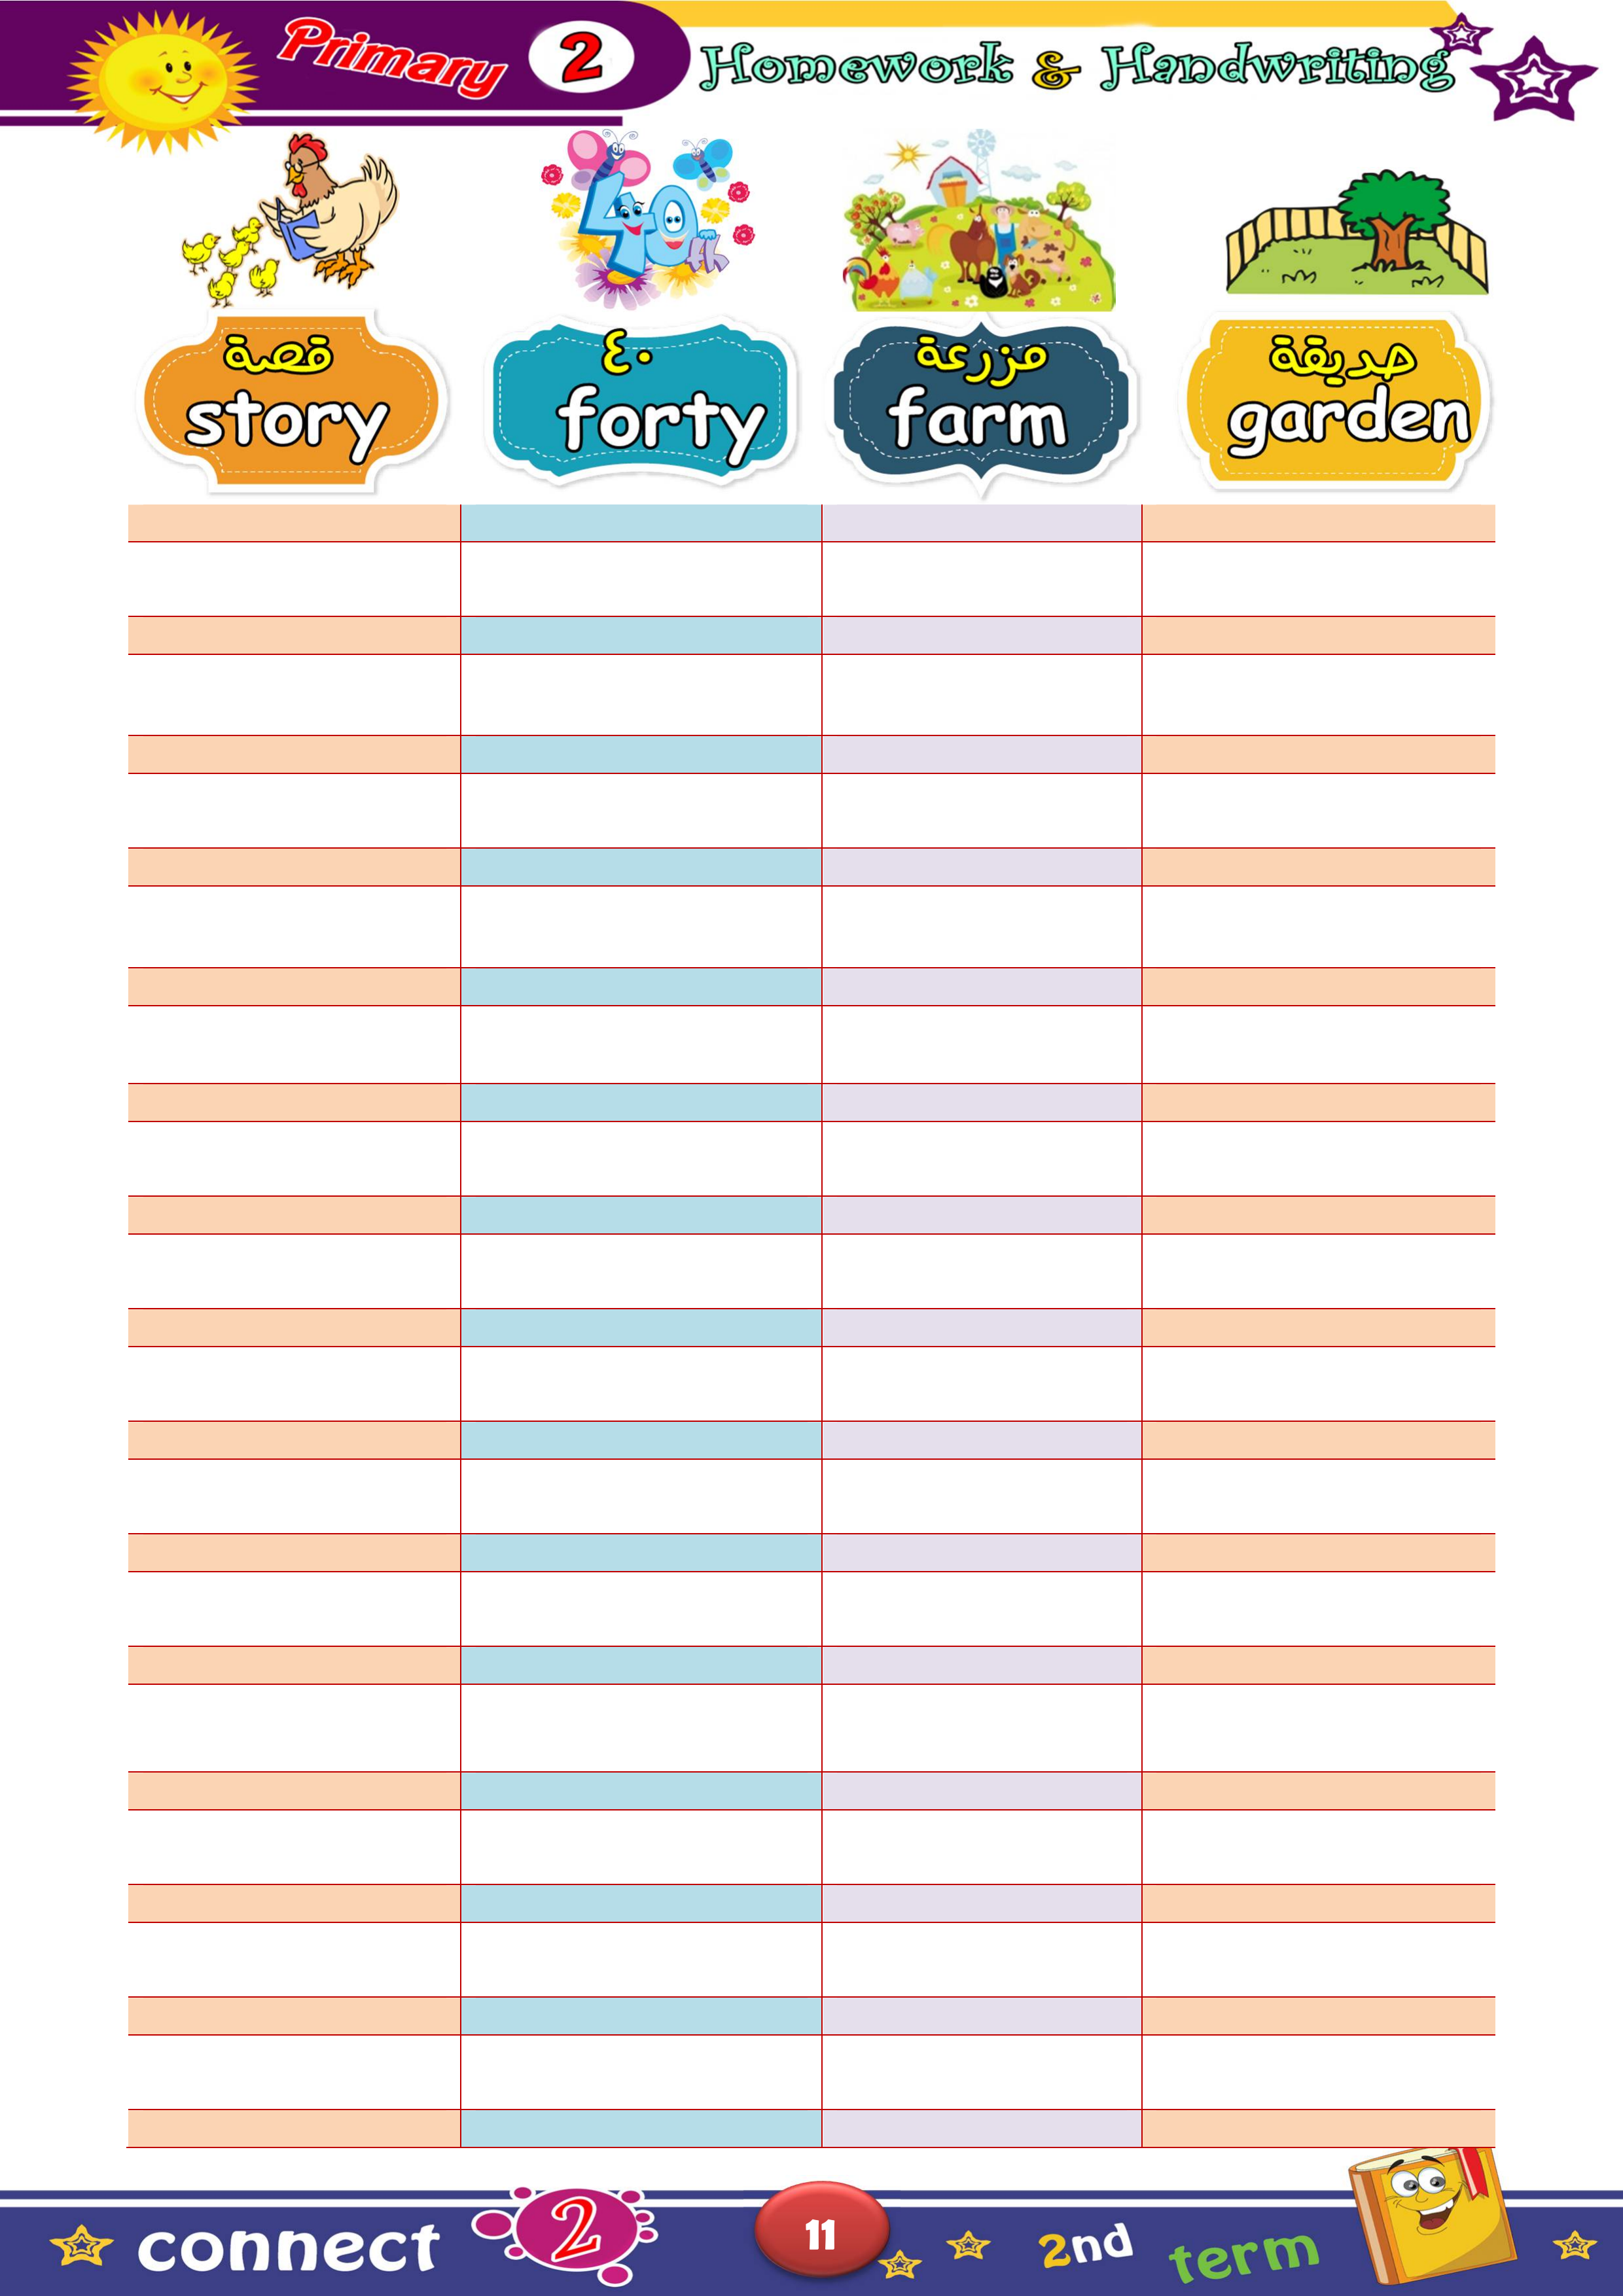 Primary 2 Homework & Handwriting
40th
قصة
story
٤٠
forty
مزرعة
farm
حديقة
garden
connect 2 11 2nd term